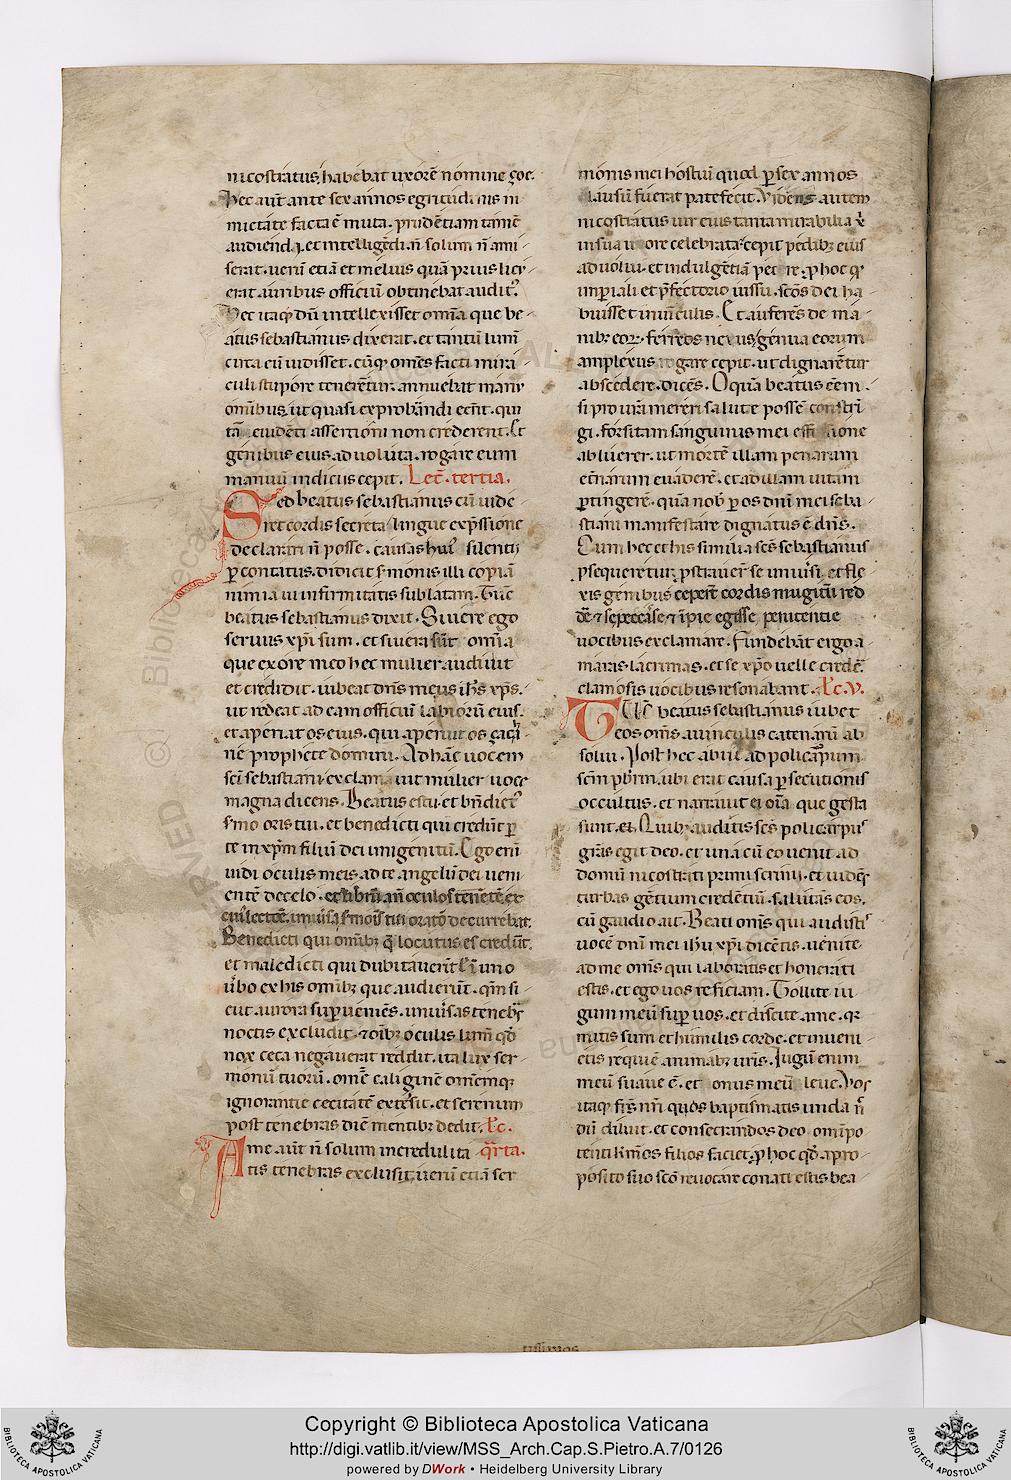 nicostratus, habebat uxorē nomine çoe.
Hec aūt ante sex annos egritudinis ni
mietate facta ē muta. prudētiam tamē
audiendi. et intelligēdi. ñ solum ñ ami
serat. uerū etiā et melius quā prius licu
erat auribus officiū obtinebat auditꝰ.
Hec itaqꝫ dū intellexisset omīa que be
atus sebastianus dixerat. et tantū lumē
circa eū uidisset. cūqꝫ omēs facti mira
culi stupore tenerētur. annuebat manu
omībus, ut quasi exprobrandi eēnt. qui
tā euidēti assertioni non crederent. Et
genibus eius aduoluta. rogare eum
manuū indiciis cepit. Lec̄. tertia.
Sed beatus sebastianus cū uide
ret cordis secreta lingue exp̄ssione
declarari ñ posse. causas huiꝰ silentij
ꝑcontatus. didicit sermonis illi copiā
nimia ui infirmitatis sublatam. Tūc
beatus sebastianus dixit. Si uere ego
seruus xp̄i sum. et si uera sūt omīa
que ex ore meo hec mulier audiuit
et credidit. iubeat dn̄s meus ih̄s xp̄s.
ut redeat ad eam officiū labiorū eius.
et aperiat os eius. qui aperuit os çacha
rie prophete domini. Ad hāc uocem
sc̄i sebastiani exclamauit mulier uoce
magna dicens. Beatus es tu. et bn̄dictꝰ
s̄mo oris tui. et benedicti qui credūt ꝑ
te in xp̄m filiū dei unigenitū. Ego eni
uidi oculis meis. ad te angelū dei ueni
entē de celo. et librū an̄ oculos tenētē. ex
cuius lectōe. uniūsa s̄monis tui oratō decurrebat.
Benedicti qui omībꝫ q̄ locutus es credūt.
et maledicti qui dubitauerīt uel ī uno
ūbo ex his omībꝫ que audierūt. qm̄ si
cut aurora suꝑueniēs. uniūsas tenebras
noctis excludit. ⁊ oībꝫ oculis lumē qđ
nox ceca negauerat reddit. ita lux ser
monū tuorū. omē caliginē omēmqꝫ
ignorantie cecitatē extersit. et serenum
post tenebras diē mentibꝫ dedit. Lc̄.
A me aūt ñ solum incredulita q̄rta.
tis tenebras exclusit. uerū etiā ser
monis mei hostiū quod ꝑ sex annos
clausū fuerat patefecit. Videns autem
nicostratus uir eius tanta mirabilia xp̄i
in sua uxore celebrata, cepit pedibꝫ eius
aduolui. et indulgētiā petere. ꝓ hoc qđ
imperiali et p̄fectorio iussu. sc̄os dei ha
buisset in uinculis. Et auferēs de ma
nibꝫ eoꝝ. ferreos nexus, genua eorum
amplexus rogare cepit. ut dignarētur
abscedere. dicēs. O quā beatus eēm.
si pro uīa mereri salute possē constrī
gi. forsitam sanguinis mei effusione
abluerer. ut mortē illam penarum
et̄narum euaderē. et ad uitam
ꝑtingerē. quā nob̄ ꝑ os dn̄i mei seba
stiani manifestare dignatus ē dn̄s.
Cum hec et his similia sc̄s sebastianus
ꝓsequeretur. ꝓstrauer̄ se uniūsi. et fle
xis genibus ceperūt cordis mugitū red
dē. ⁊ se peccāse. ⁊ īpie egisse. penitentie
uocibus exclamare. Fundebāt ergo a
maras lacrimas. et se xp̄o uelle credē.
clamosis uocibus resonabant. Lc̄. V.
TUC̄ beatus sebastianus iubet
eos omēs a uinculis catenarū ab
solui. Post hec abiit ad policarpum
sc̄m pb̄rm. ubi erat causa ꝑsecutionis
occultus. et narrauit ei oīa que gesta
sunt. Quibꝫ auditis sc̄s policarpus
grās egit deo. et una cū eo uenit ad
domū nicostrati primiscrinij. et uidēs
turbas gētium credētiū. salutās eos.
cū gaudio ait. Beati omēs qui audistis
uocē dn̄i mei ih̄u xp̄i dicētis. uenite
ad me omēs qui laboratis et honerati
estis. et ego uos reficiam. Tollite iu
gum meū suꝑ uos. et discite a me. qꝛ
mitis sum et humilis corde. et inueni
etis requiē animabꝫ ur̄is. Jugū enim
meū suaue ē. et onus meū leue. Vos
itaqꝫ fr̄s nr̄i quos baptismatis unda ñ
dū diluit. et consecrandos deo omīpo
tenti karmos filios faciet. ꝓ hoc qđ a pro
posito suo sc̄o reuocare conati estis bea
Copyright © Biblioteca Apostolica Vaticana
http://digi.vatlib.it/view/MSS_Arch.Cap.S.Pietro.A.7/0126
powered by DWork • Heidelberg University Library
BIBLIOTECA APOSTOLICA VATICANA
BIBLIOTECA APOSTOLICA VATICANA